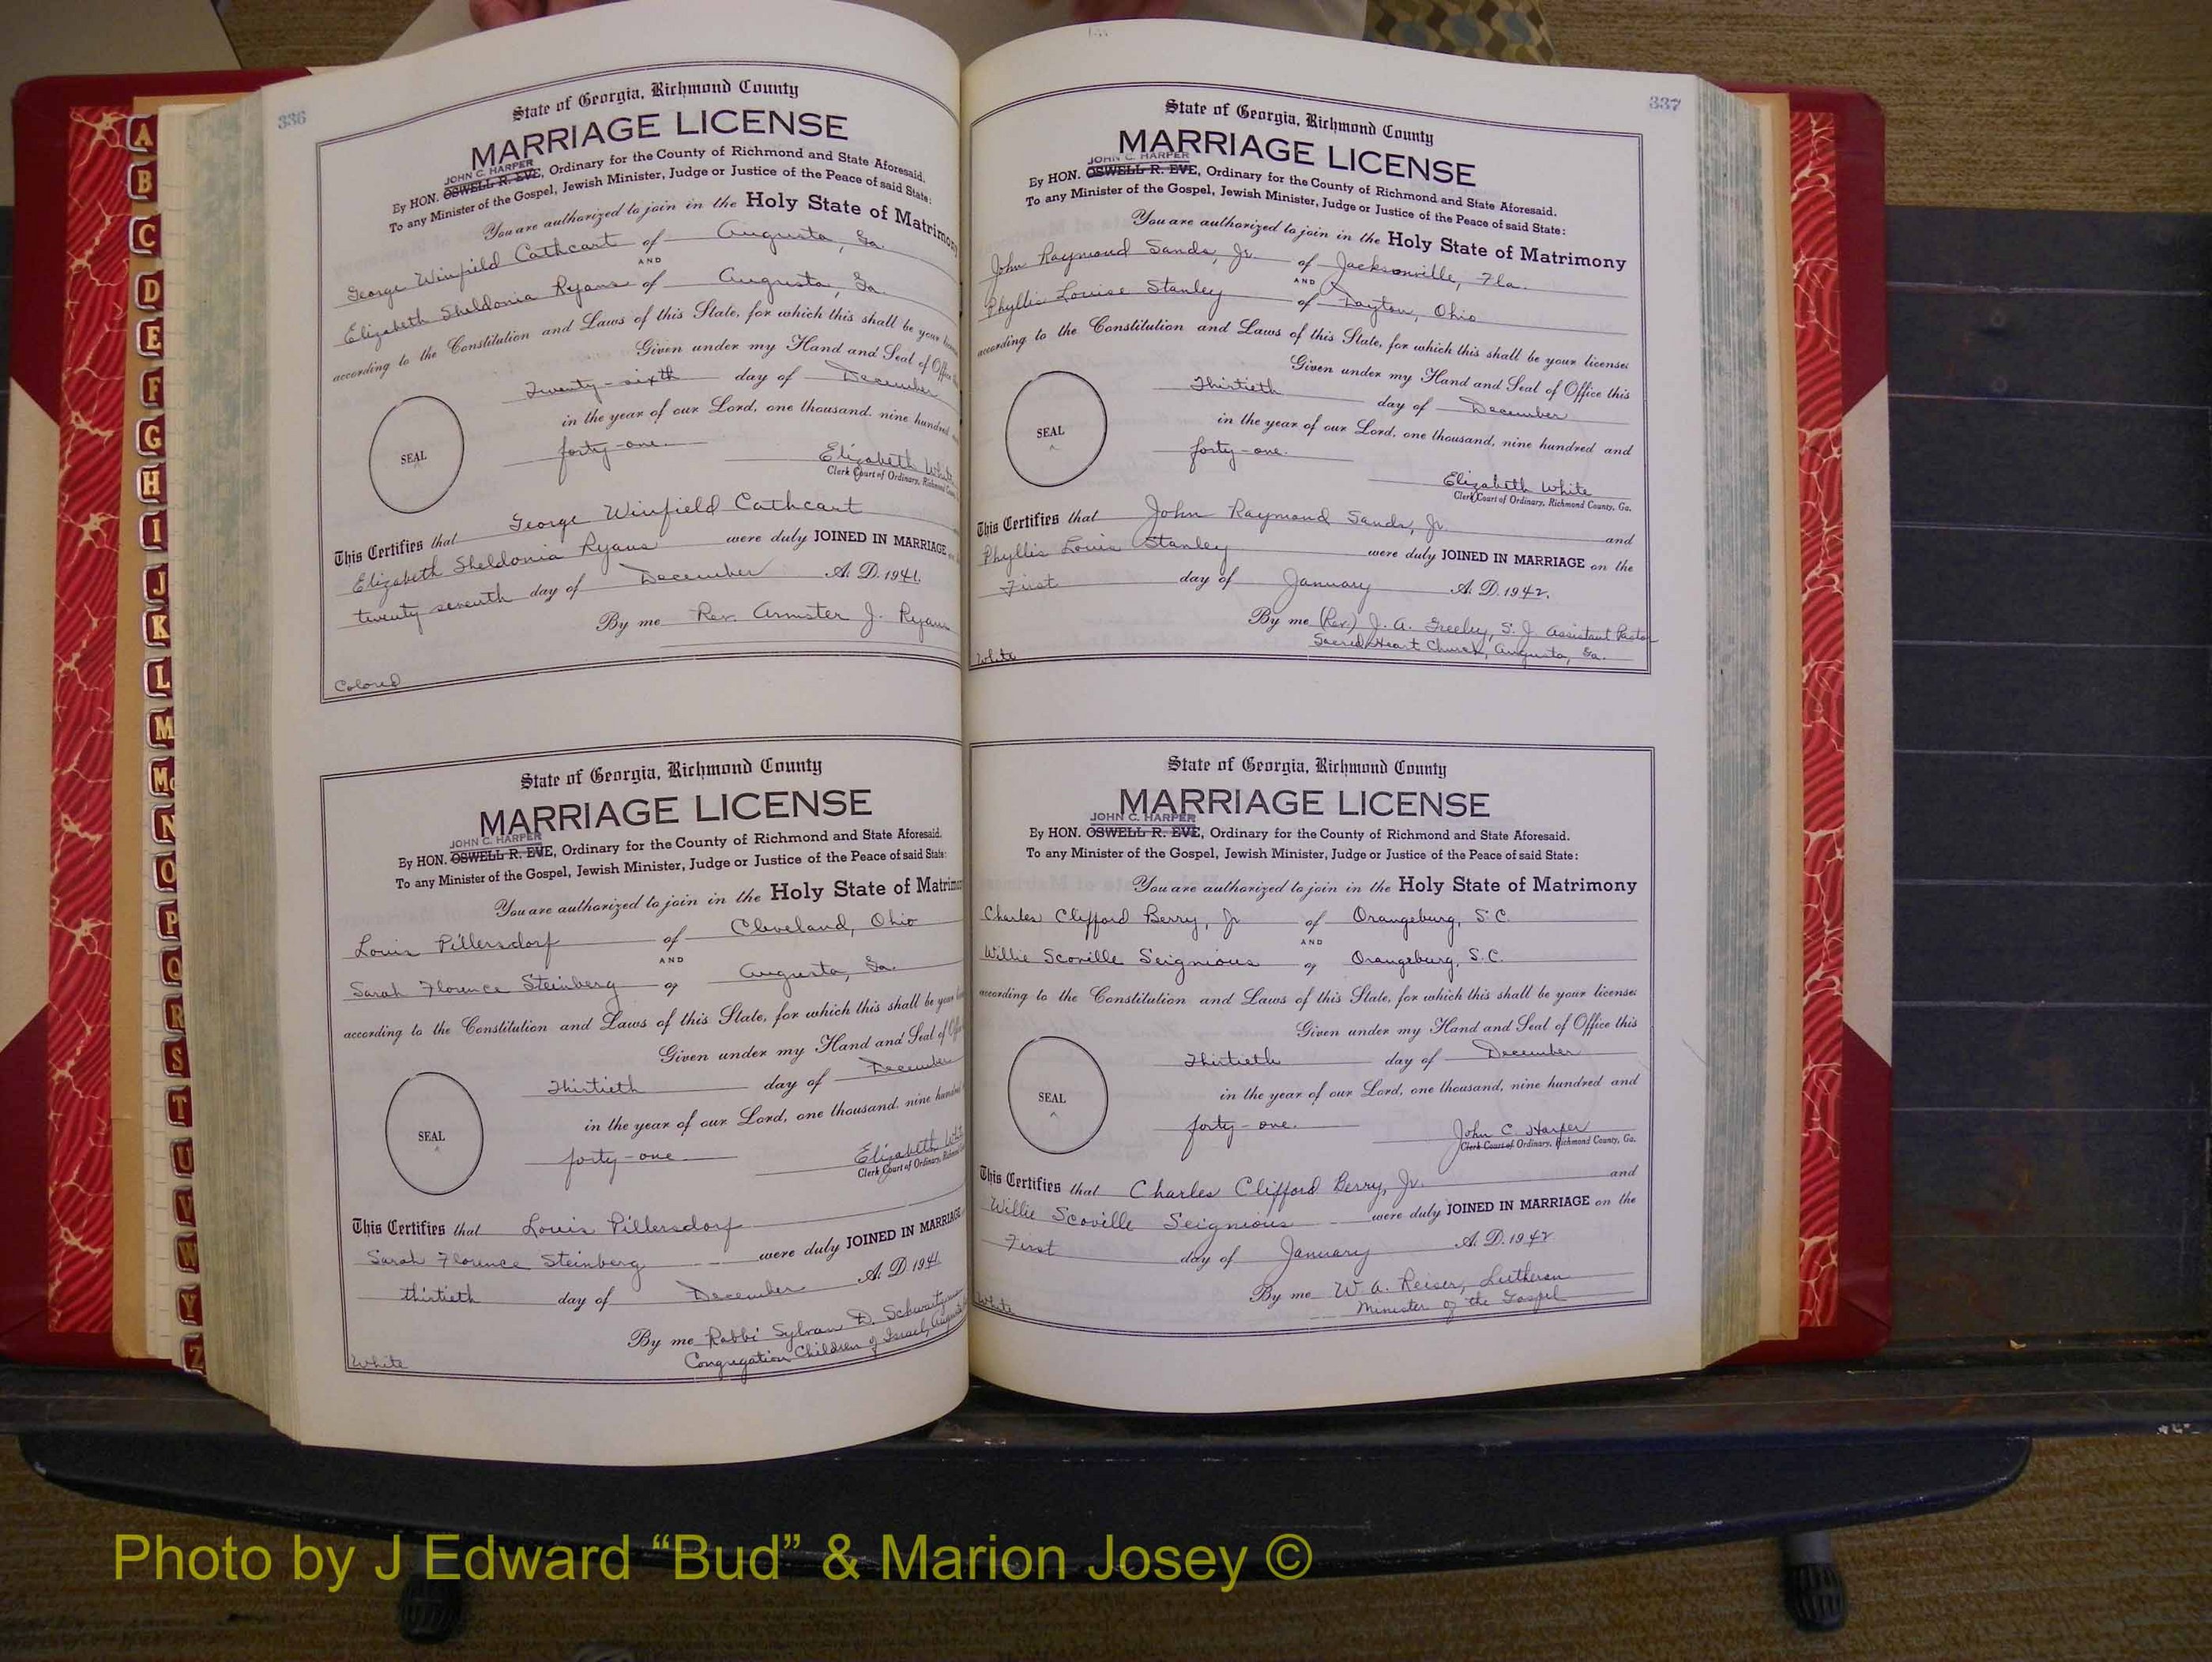 336
State of Georgia, Richmond County
MARRIAGE LICENSE
JOHN C. HARPER
By HON. OSWELL R. EVE, Ordinary for the County of Richmond and State Aforesaid.
To any Minister of the Gospel, Jewish Minister, Judge or Justice of the Peace of said State:
You are authorized to join in the Holy State of Matrimony
George Winfield Cathcart of Augusta, Ga.
AND
Elizabeth Sheldonia Ryans of Augusta, Ga.
according to the Constitution and Laws of this State, for which this shall be your
Given under my Hand and Seal of Office
Twenty-sixth day of December
in the year of our Lord, one thousand, nine hundred
forty-one.
SEAL
Elizabeth White
Clerk Court of Ordinary, Richmond
This Certifies that George Winfield Cathcart
Elizabeth Sheldonia Ryans were duly JOINED IN MARRIAGE
twenty seventh day of December A. D. 1941.
By me Rev. Armster J. Ryans
Colored
State of Georgia, Richmond County
MARRIAGE LICENSE
JOHN C. HARPER
By HON. OSWELL R. EVE, Ordinary for the County of Richmond and State Aforesaid.
To any Minister of the Gospel, Jewish Minister, Judge or Justice of the Peace of said State:
You are authorized to join in the Holy State of Matrimo
Louis Pillersdorf of Cleveland, Ohio
AND
Sarah Florence Steinberg of Augusta, Ga.
according to the Constitution and Laws of this State, for which this shall be your
Given under my Hand and Seal of
Thirtieth day of December
in the year of our Lord, one thousand, nine hundred
forty-one
SEAL
Elizabeth White
Clerk Court of Ordinary, Richmond
This Certifies that Louis Pillersdorf
Sarah Florence Steinberg were duly JOINED IN MARRIAGE
thirtieth day of December A. D. 1941.
By me Rabbi Sylvan D. Schwartzman
Congregation Children of Israel, Augusta
White
337
State of Georgia, Richmond County
MARRIAGE LICENSE
JOHN C. HARPER
By HON. OSWELL R. EVE, Ordinary for the County of Richmond and State Aforesaid.
To any Minister of the Gospel, Jewish Minister, Judge or Justice of the Peace of said State:
You are authorized to join in the Holy State of Matrimony
John Raymond Sands, Jr. of Jacksonville, Fla.
AND
Phyllis Louise Stanley of Dayton, Ohio
according to the Constitution and Laws of this State, for which this shall be your license:
Given under my Hand and Seal of Office this
Thirtieth day of December
in the year of our Lord, one thousand, nine hundred and
forty-one.
SEAL
Elizabeth White
Clerk Court of Ordinary, Richmond County, Ga.
This Certifies that John Raymond Sands, Jr. and
Phyllis Louis Stanley were duly JOINED IN MARRIAGE on the
First day of January A. D. 1942.
By me (Rev.) J. A. Greeley, S. J. Assistant Pastor
Sacred Heart Church, Augusta, Ga.
White
State of Georgia, Richmond County
MARRIAGE LICENSE
JOHN C. HARPER
By HON. OSWELL R. EVE, Ordinary for the County of Richmond and State Aforesaid.
To any Minister of the Gospel, Jewish Minister, Judge or Justice of the Peace of said State:
You are authorized to join in the Holy State of Matrimony
Charles Clifford Berry, Jr of Orangeburg, S.C.
AND
Willie Scoville Seignious of Orangeburg, S.C.
according to the Constitution and Laws of this State, for which this shall be your license:
Given under my Hand and Seal of Office this
Thirtieth day of December
in the year of our Lord, one thousand, nine hundred and
forty-one.
SEAL
John C. Harper
Clerk Court of Ordinary, Richmond County, Ga.
This Certifies that Charles Clifford Berry, Jr. and
Willie Scoville Seignious were duly JOINED IN MARRIAGE on the
First day of January A. D. 1942
By me W. A. Reiser, Lutheran
Minister of the Gospel
White
A
B
C
D
E
F
G
H
I
J
K
L
M
Mc
N
O
P
Q
R
S
T
U
V
W
Y
Z
Photo by J Edward “Bud” & Marion Josey ©